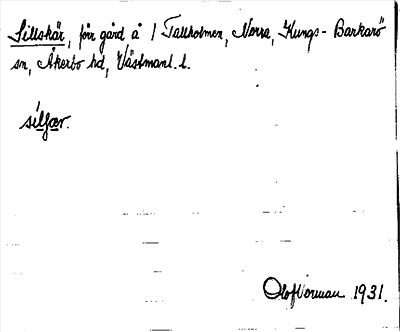 Sillskär, förr gård å 1 Tallholmen, Norra, Kungs-Barkarö
sn, Åkerbo hd, Västmanl. l.
silfær.
Olof Norman 1931.